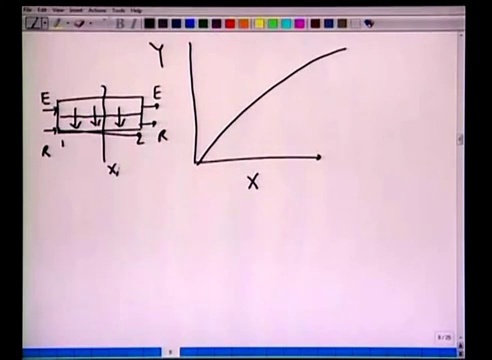 File Edit View Insert Actions Tools Help
Y
E E
R 1 2 R
Xi
X